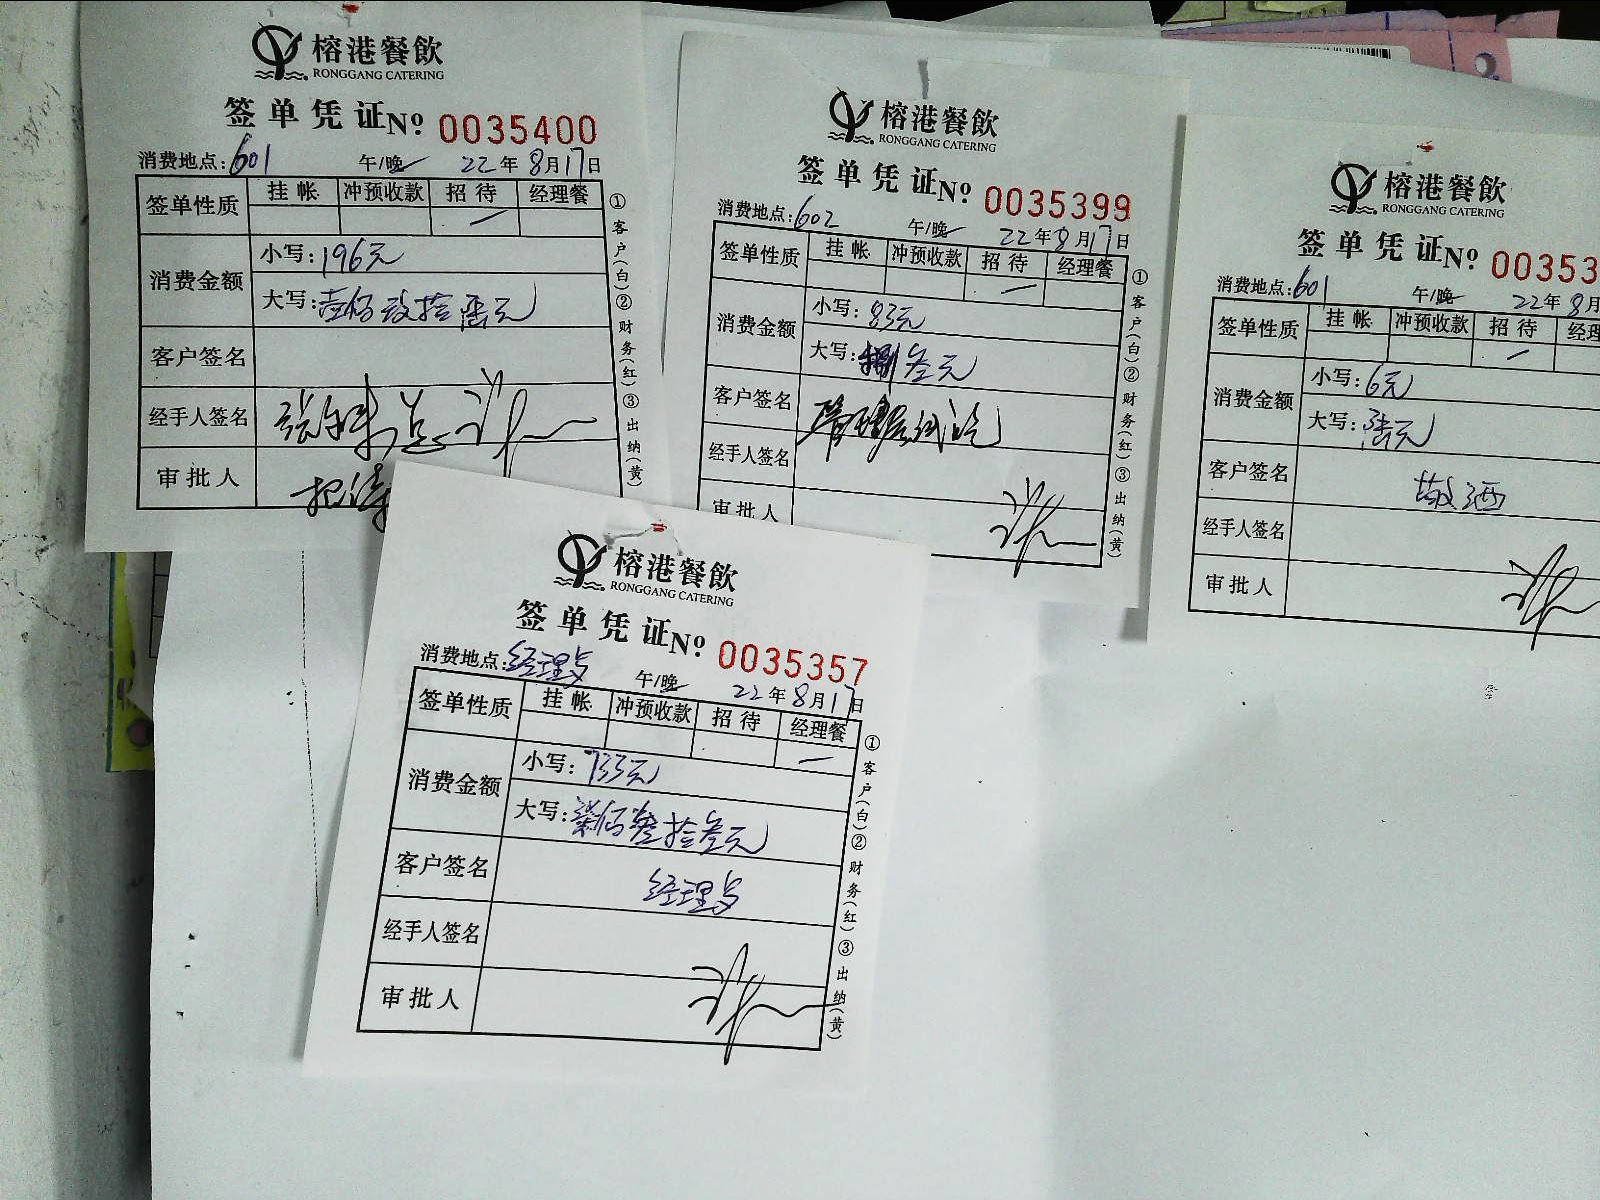 榕港餐飲
RONGGANG CATERING
签单凭证No: 0035400
消费地点:601 午/晚 22年8月17日
签单性质 挂帐 冲预收款 招待 经理餐
消费金额 小写:196元
大写:壹佰玖拾陆元
客户签名
经手人签名
审批人
①客户(白)②财务(红)③出纳(黄)
榕港餐飲
RONGGANG CATERING
签单凭证No: 0035399
消费地点:602 午/晚 22年8月17日
签单性质 挂帐 冲预收款 招待 经理餐
消费金额 小写:83元
大写:捌叁元
客户签名
经手人签名
审批人
①客户(白)②财务(红)③出纳(黄)
榕港餐飲
RONGGANG CATERING
签单凭证No: 00353
消费地点:601 午/晚 22年8月
签单性质 挂帐 冲预收款 招待 经理
消费金额 小写:6元
大写:陆元
客户签名 敬酒
经手人签名
审批人
榕港餐飲
RONGGANG CATERING
签单凭证No: 0035357
消费地点:经理餐 午/晚 22年8月17日
签单性质 挂帐 冲预收款 招待 经理餐
消费金额 小写:733元
大写:柒佰叁拾叁元
客户签名 经理餐
经手人签名
审批人
①客户(白)②财务(红)③出纳(黄)